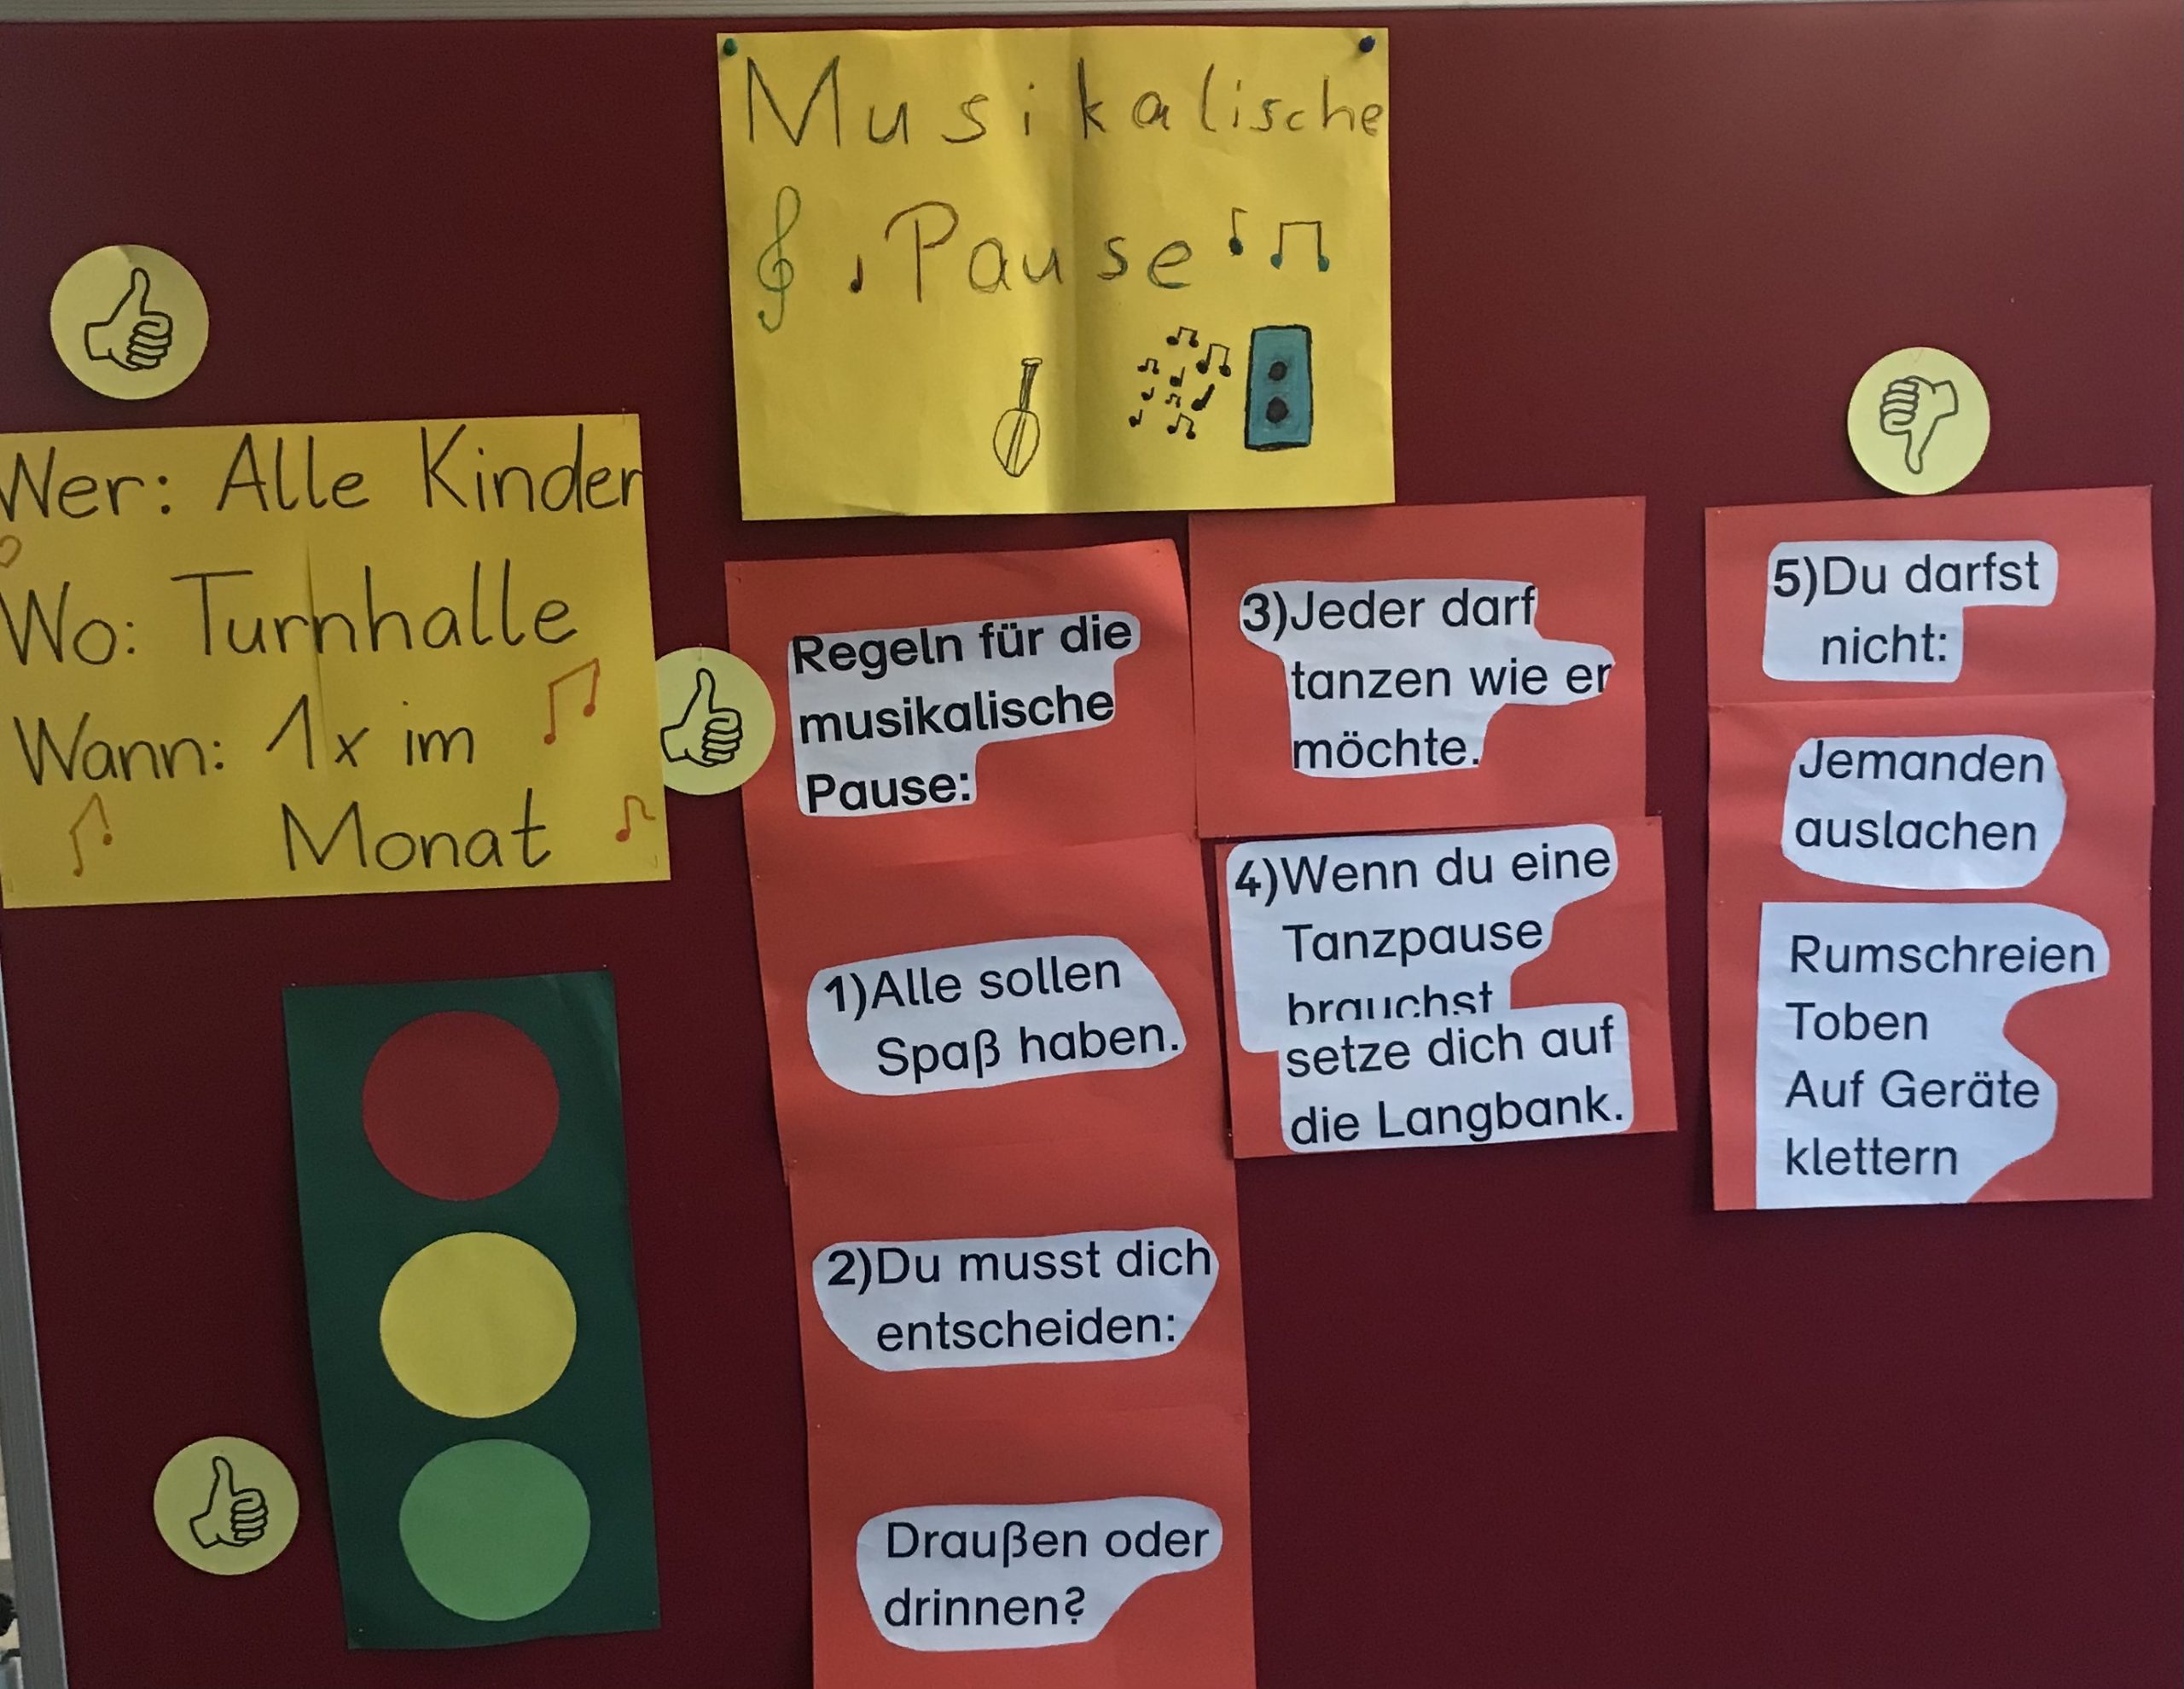 Musikalische
Pause
Wer: Alle Kinder
Wo: Turnhalle
Wann: 1x im
Monat
Regeln für die
musikalische
Pause:
1)Alle sollen
Spaß haben.
2)Du musst dich
entscheiden:
Draußen oder
drinnen?
3)Jeder darf
tanzen wie er
möchte.
4)Wenn du eine
Tanzpause
brauchst
setze dich auf
die Langbank.
5)Du darfst
nicht:
Jemanden
auslachen
Rumschreien
Toben
Auf Geräte
klettern